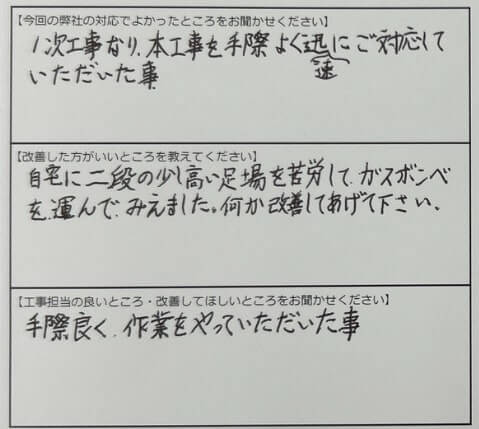 【今回の弊社の対応でよかったところをお聞かせください】
1次工事なり、本工事を手際よく迅速にご対応して
いただいた事
【改善した方がいいところを教えてください】
自宅に二段の少し高い足場を苦労して、ガスボンベ
を、運んで、みえました。何か改善してあげて下さい、
【工事担当の良いところ・改善してほしいところをお聞かせください】
手際良く、作業をやっていただいた事